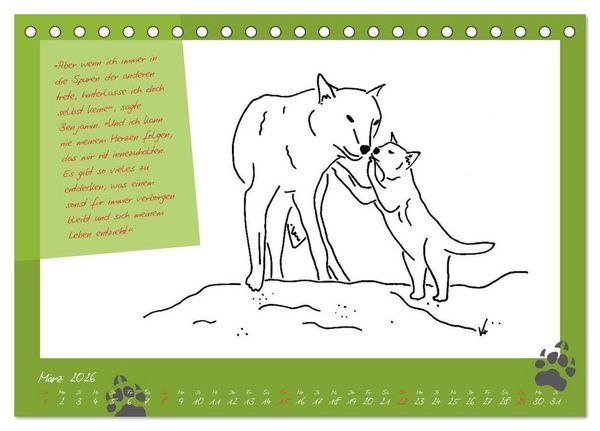 "Aber wenn ich immer in
die Spuren der anderen
trete, hinterlasse ich doch
selbst keine", sagte
Benjamin. "Und ich kann
nie meinem Herzen folgen,
das mir rät innezuhalten.
Es gibt so vieles zu
entdecken, was einem
sonst für immer verborgen
bleibt und sich meinem
Leben entzieht."
März 2026
So Mo Di Mi Do Fr Sa So Mo Di Mi Do Fr Sa So Mo Di Mi Do Fr Sa So Mo Di Mi Do Fr Sa So Mo Di
1 2 3 4 5 6 7 8 9 10 11 12 13 14 15 16 17 18 19 20 21 22 23 24 25 26 27 28 29 30 31